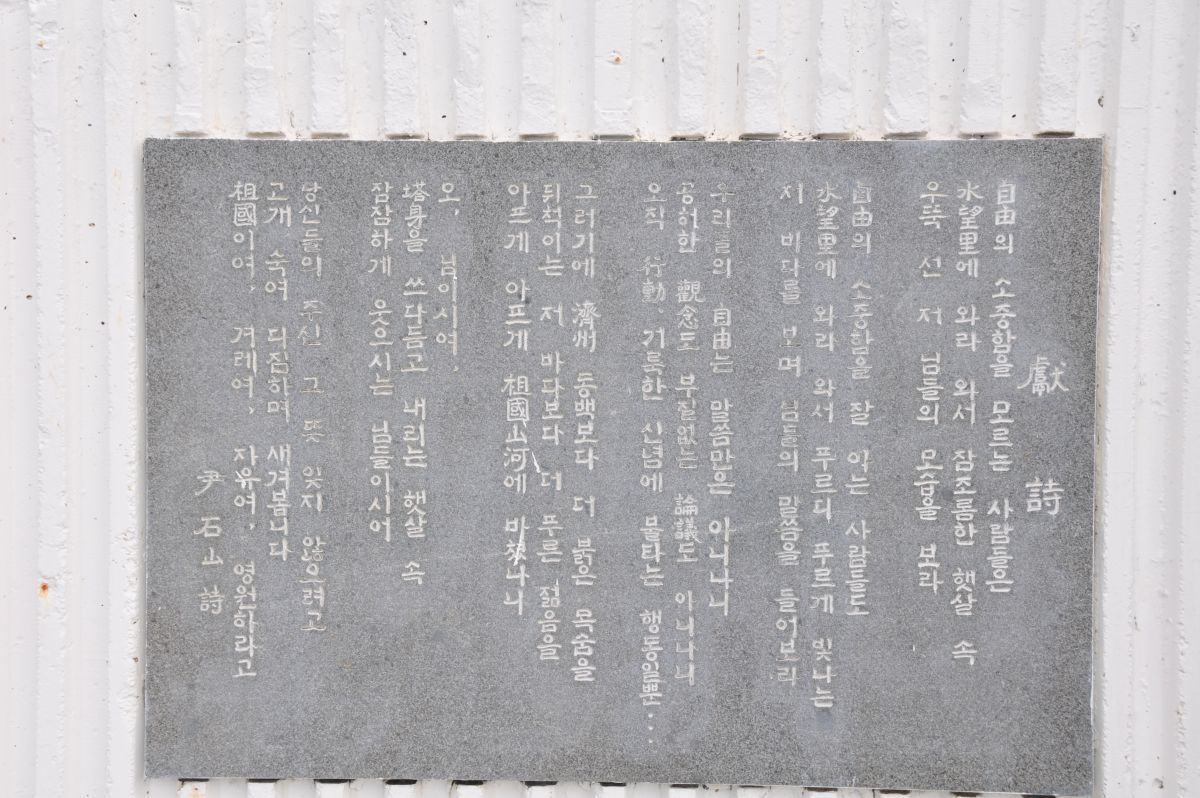 獻 詩
自由의 소중함을 모르는 사람들은
水望里에 와라 와서 잠조롬한 햇살 속
우뚝 선 저 님들의 모습을 보라
自由의 소중함을 잘 아는 사람들도
水望里에 와라 와서 푸르디 푸르게 빛나는
저 바다를 보며 님들의 말씀을 들어보라
우리들의 自由는 말씀만은 아니나니
공허한 觀念도 부질없는 論議도 아니나니
오직 行動, 거룩한 신념에 불타는 행동일뿐...
그러기에 濟州 동백보다 더 붉은 목숨을
뒤척이는 저 바다보다 더 푸른 젊음을
아프게 아프게 祖國山河에 바쳤나니
오, 님이시여,
塔身을 쓰다듬고 내리는 햇살 속
잠잠하게 웃으시는 님들이시어
당신들의 주신 그 뜻 잊지 않으려고
고개 숙여 다짐하며 새겨봅니다
祖國이여, 겨레여, 자유여, 영원하라고
尹石山 詩